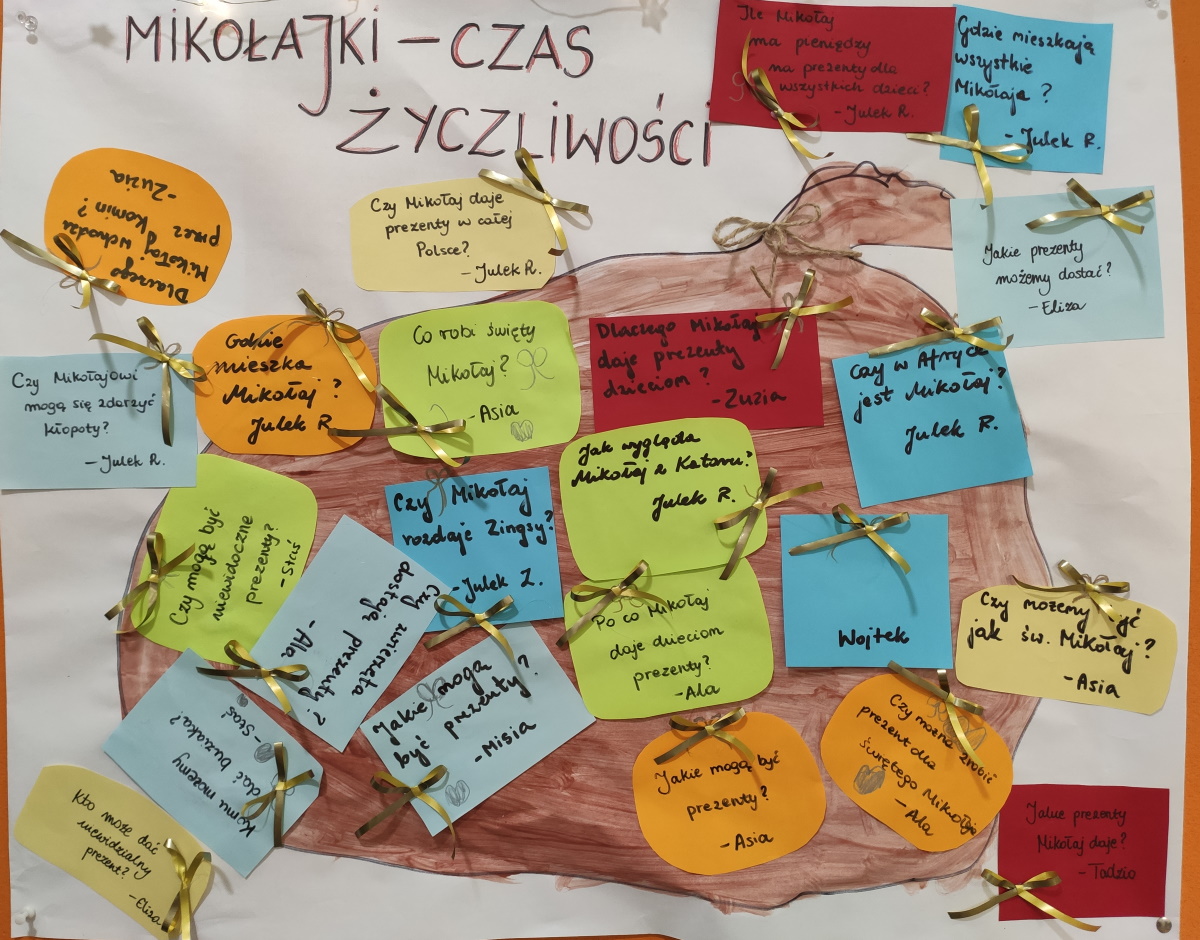 MIKOŁAJKI – CZAS
ŻYCZLIWOŚCI
Ile Mikołaj
ma pieniędzy
na prezenty dla
wszystkich dzieci?
- Julek R.
Gdzie mieszkają
wszystkie
Mikołaje ?
- Julek R.
Dlaczego
Mikołaj wchodzi
przez komin ?
- Zuzia
Czy Mikołaj daje
prezenty w całej
Polsce?
- Julek R.
Jakie prezenty
możemy dostać?
- Eliza
Czy Mikołajowi
mogą się zdarzyć
kłopoty?
- Julek R.
Gdzie
mieszka
Mikołaj ?
Julek R.
Co robi święty
Mikołaj?
- Asia
Dlaczego Mikołaj
daje prezenty
dzieciom ?
- Zuzia
Czy w Afryce
jest Mikołaj?
Julek R.
Czy mogą być
niewidoczne
prezenty?
- Staś
Czy Mikołaj
rozdaje Zingsy?
- Julek Z.
Jak wygląda
Mikołaj z Kataru?
Julek R.
Czy zwierzęta
dostają prezenty ?
- Ala
Po co Mikołaj
daje dzieciom
prezenty?
- Ala
Wojtek
Czy możemy
jak św. Mikołaj ?
- Asia
Komu możemy
dać buziaka?
- Staś
Jakie mogą
być prezenty?
- Misia
Jakie mogą być
prezenty?
- Asia
Czy można zrobić
prezent dla
świętego Mikołaja
- Ala
Kto może dać
niewidzialny
prezent?
- Eliza
Jakie prezenty
Mikołaj daje?
- Tadzio